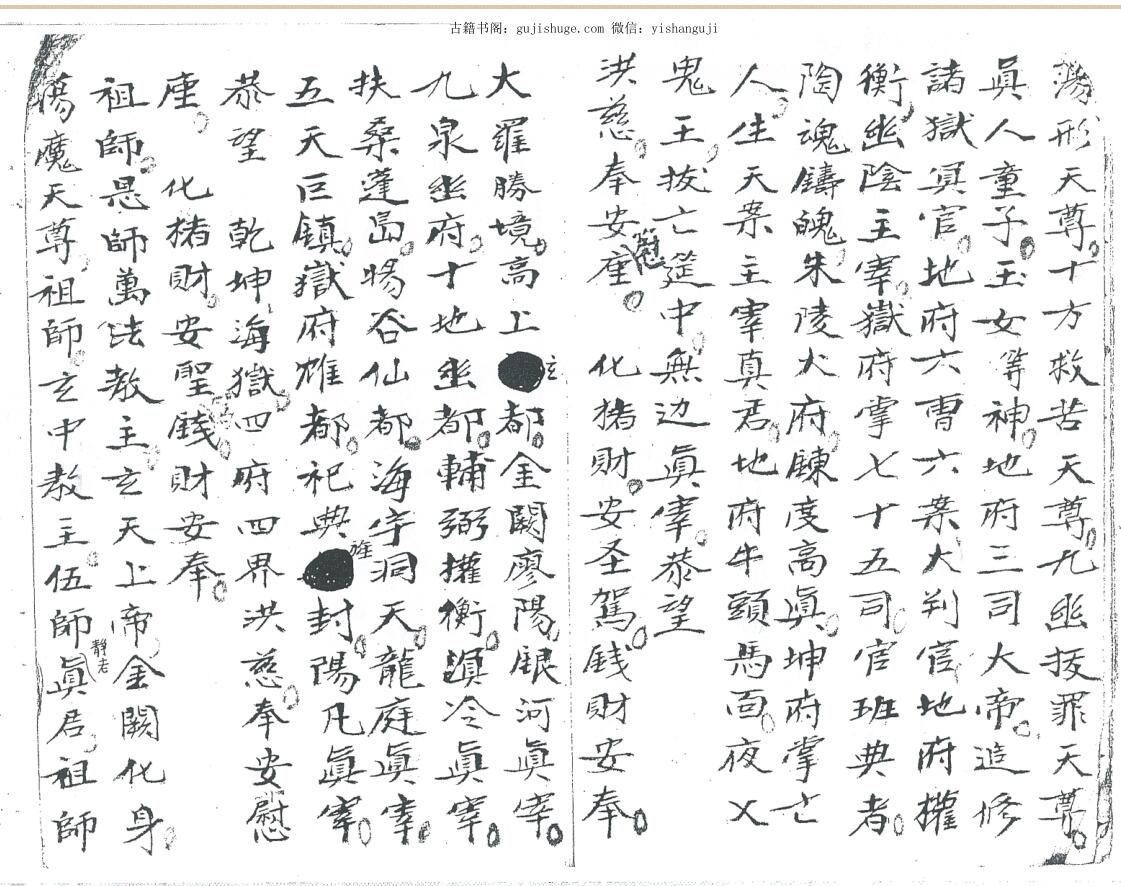 古籍书阁：gujishuge.com 微信：yishanguji
蕩形天尊。十方救苦天尊。九幽拔罪天尊。
眞人童子。玉女等神。地府三司大帝。造修
諸獄冥官。地府六曹六案大判官地府權
衡。幽陰主宰。嶽府掌七十五司。官班典者。
陶魂鑄魄。朱陵火府。鍊度高眞。坤府掌亡
人。生天案主宰真君。地府牛頭馬面。夜乂
鬼王。拔亡筵中。無边眞宰。恭望
洪慈。奉安慰座。 化猪財。安圣駕。錢財安奉。
大羅勝境。高上玄都。金闕廖陽。銀河眞宰。
九泉幽府。十地幽都。輔弼權衡。遐冷眞宰。
扶桑蓬島。暘谷仙都。海宇洞天。龍庭眞宰。
五天巨鎮。嶽府雄都。祀典旌封。陽凡眞宰。
恭望 乾坤海嶽。四府四界洪慈。奉安慰
座。 化猪財。安聖。錢財安奉。
祖師。恩師萬法教主。玄天上帝。金闕化身。
蕩魔天尊。祖師。玄中教主。伍師靜老眞君。祖師